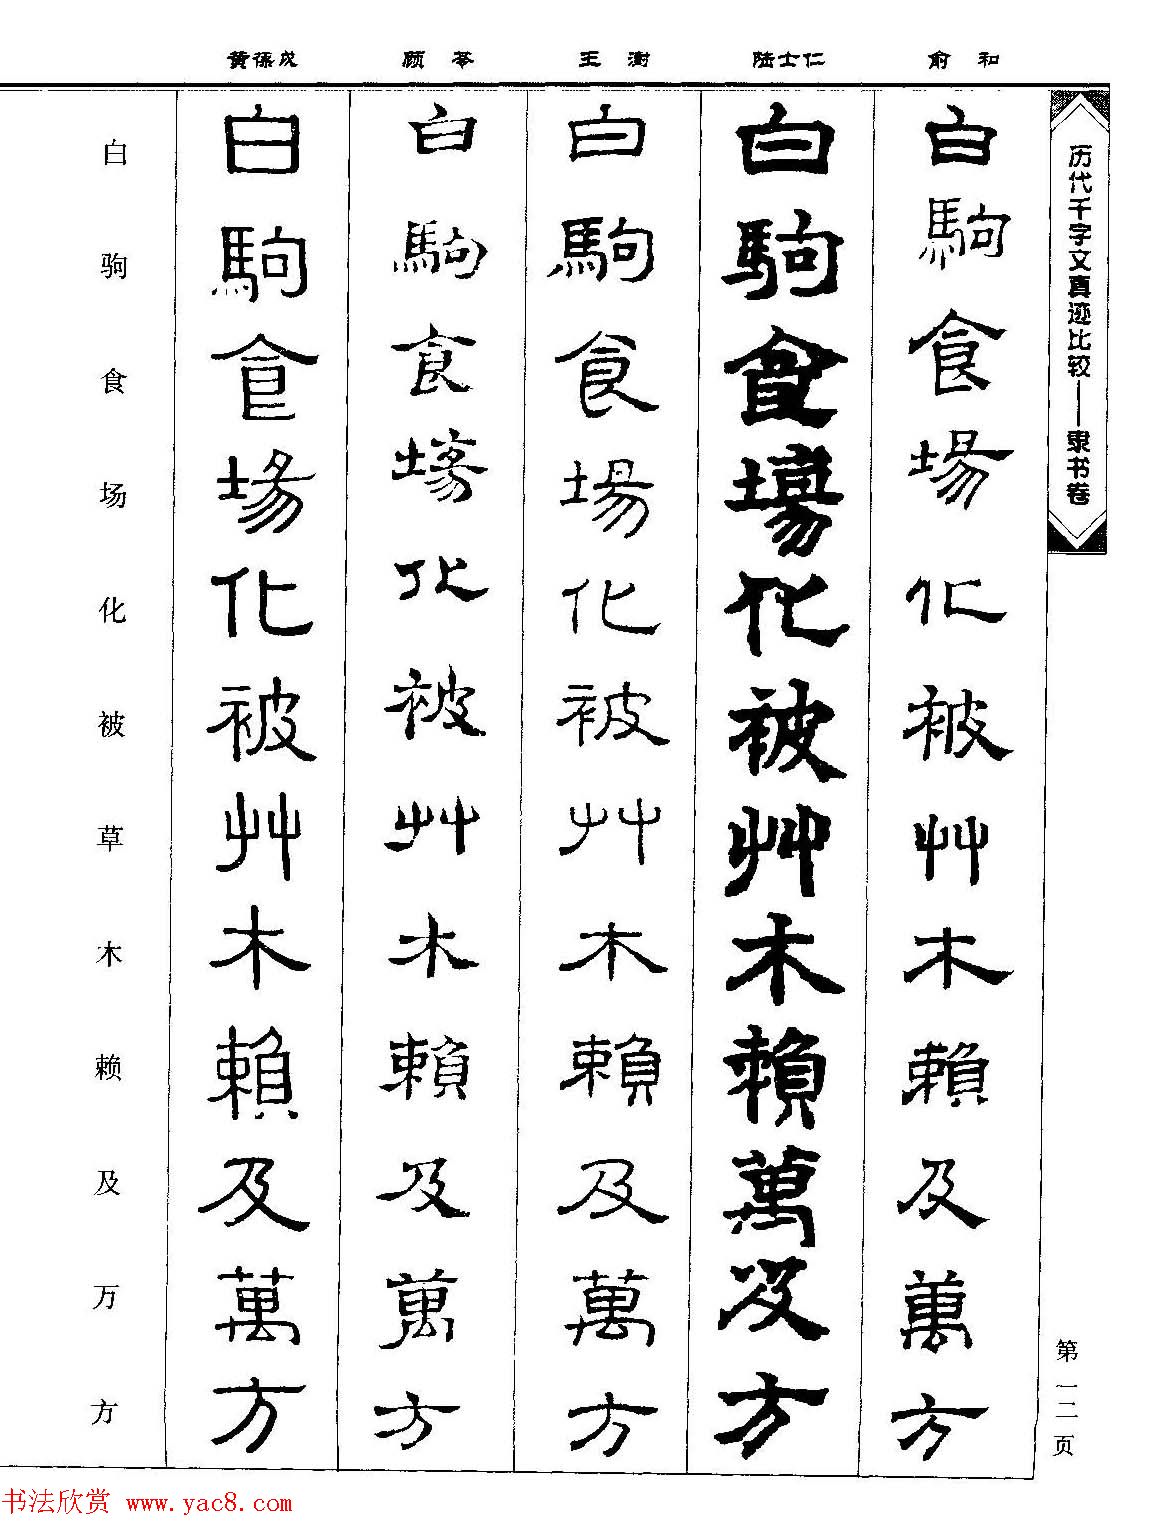 历代千字文真迹比较——隶书卷
第一二页
俞和
白駒食場化被艸木賴及萬方
陆士仁
白駒食場化被艸木賴萬及方
王澍
白駒食場化被艸木賴及萬方
顾苓
白駒食場化被艸木賴及萬方
黄葆戉
白駒食場化被艸木賴及萬方
白驹食场化被草木赖及万方
书法欣赏 www.yac8.com